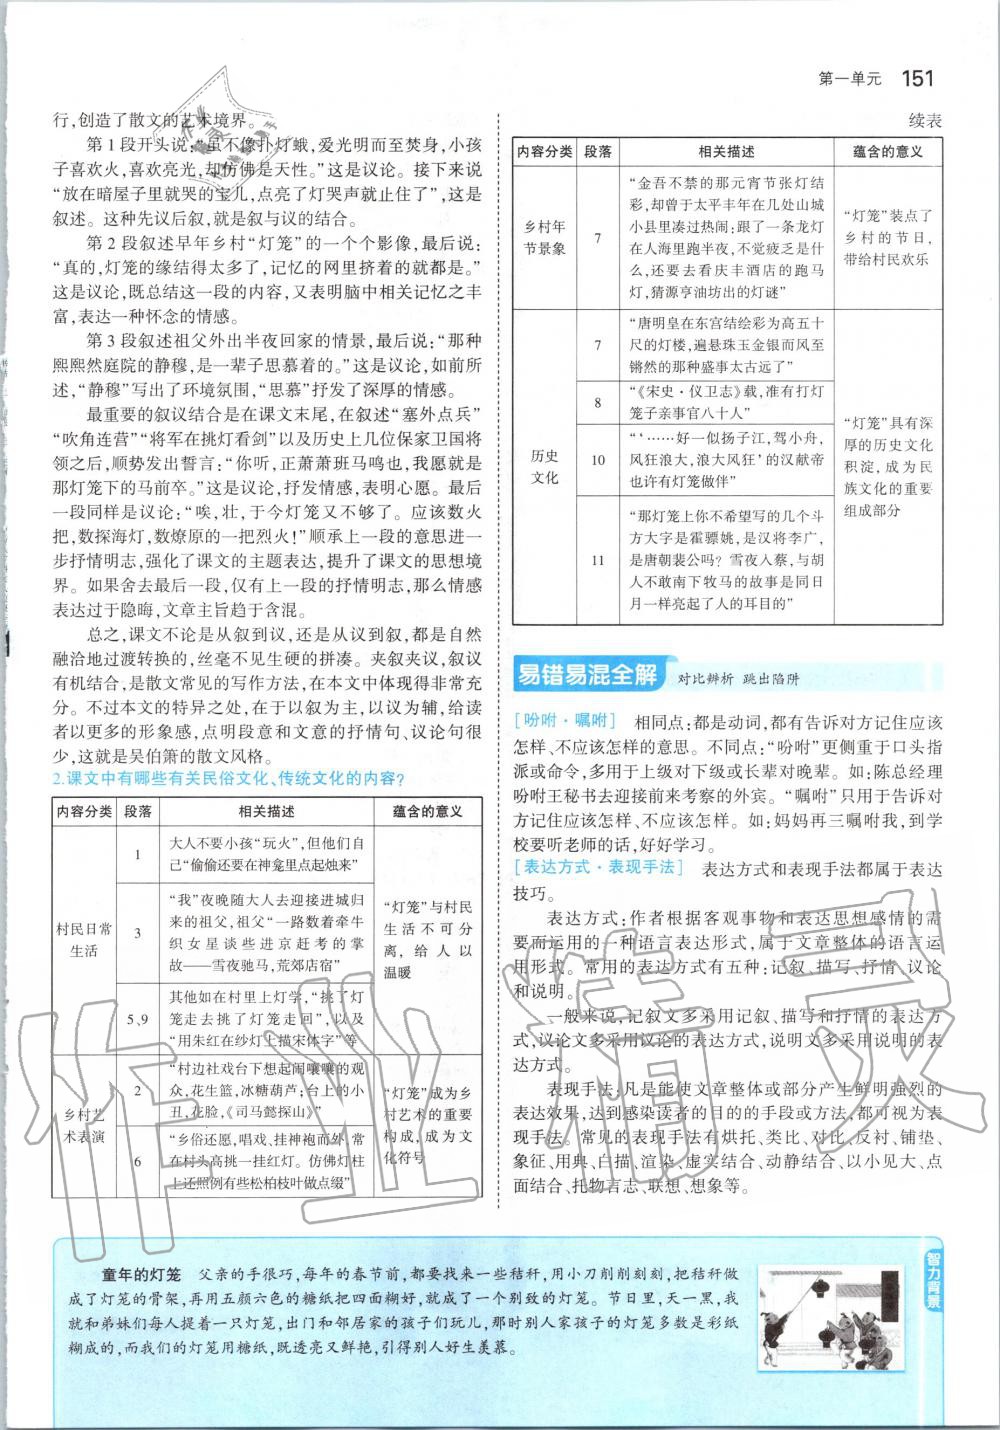 第一单元 151
行,创造了散文的艺术境界。
第1段开头说:“虽不像扑灯蛾,爱光明而至焚身,小孩
子喜欢火,喜欢亮光,却仿佛是天性。”这是议论。接下来说
“放在暗屋子里就哭的宝儿,点亮了灯哭声就止住了”,这是
叙述。这种先议后叙,就是叙与议的结合。
第2段叙述早年乡村“灯笼”的一个个影像,最后说:
“真的,灯笼的缘结得太多了,记忆的网里挤着的就都是。”
这是议论,既总结这一段的内容,又表明脑中相关记忆之丰
富,表达一种怀念的情感。
第3段叙述祖父外出半夜回家的情景,最后说:“那种
熙熙然庭院的静穆,是一辈子思慕着的。”这是议论,如前所
述,“静穆”写出了环境氛围,“思慕”抒发了深厚的情感。
最重要的叙议结合是在课文末尾,在叙述“塞外点兵”
“吹角连营”“将军在挑灯看剑”以及历史上几位保家卫国将
领之后,顺势发出誓言:“你听,正萧萧班马鸣也,我愿就是
那灯笼下的马前卒。”这是议论,抒发情感,表明心愿。最后
一段同样是议论:“唉,壮,于今灯笼又不够了。应该数火
把,数探海灯,数燎原的一把烈火!”顺承上一段的意思进一
步抒情明志,强化了课文的主题表达,提升了课文的思想境
界。如果舍去最后一段,仅有上一段的抒情明志,那么情感
表达过于隐晦,文章主旨趋于含混。
总之,课文不论是从叙到议,还是从议到叙,都是自然
融洽地过渡转换的,丝毫不见生硬的拼凑。夹叙夹议,叙议
有机结合,是散文常见的写作方法,在本文中体现得非常充
分。不过本文的特异之处,在于以叙为主,以议为辅,给读
者以更多的形象感,点明段意和文意的抒情句、议论句很
少,这就是吴伯箫的散文风格。
2.课文中有哪些有关民俗文化、传统文化的内容?
内容分类 段落 相关描述 蕴含的意义
村民日常
生活
1
大人不要小孩“玩火”,但他们自
己“偷偷还要在神龛里点起烛来”
3
“我”夜晚随大人去迎接进城归
来的祖父,祖父“一路数着牵牛
织女星谈些进京赶考的掌
故——雪夜驰马,荒郊店宿”
5、9
其他如在村里上灯学,“挑了灯
笼走去挑了灯笼走回”,以及
“用朱红在纱灯上描宋体字”等
“灯笼”与村民
生活不可分
离,给人以
温暖
乡村艺
术表演
2
“村边社戏台下想起闹嚷嚷的观
众,花生篮,冰糖葫芦;台上的小
丑,花脸,《司马懿探山》”
6
“乡俗还愿,唱戏、挂神袍而外,常
在村头高挑一挂红灯。仿佛灯柱
上还照例有些松柏枝叶做点缀”
“灯笼”成为乡
村艺术的重要
构成,成为文
化符号
续表
内容分类 段落 相关描述 蕴含的意义
乡村年
节景象
7
“金吾不禁的那元宵节张灯结
彩,却曾于太平丰年在几处山城
小县里凑过热闹:跟了一条龙灯
在人海里跑半夜,不觉疲乏是什
么,还要去看庆丰酒店的跑马
灯,猜源亨油坊出的灯谜”
“灯笼”装点了
乡村的节日,
带给村民欢乐
历史
文化
7
“唐明皇在东宫结绘彩为高五十
尺的灯楼,遍悬珠玉金银而风至
锵然的那种盛事太古远了”
8
“《宋史·仪卫志》载,准有打灯
笼子亲事官八十人”
10
“‘……好一似扬子江,驾小舟,
风狂浪大,浪大风狂’的汉献帝
也许有灯笼做伴”
11
“那灯笼上你不希望写的几个斗
方大字是霍骠姚,是汉将李广,
是唐朝裴公吗?雪夜入蔡,与胡
人不敢南下牧马的故事是同日
月一样亮起了人的耳目的”
“灯笼”具有深
厚的历史文化
积淀,成为民
族文化的重要
组成部分
易错易混全解 对比辨析 跳出陷阱
[吩咐·嘱咐] 相同点:都是动词,都有告诉对方记住应该
怎样、不应该怎样的意思。不同点:“吩咐”更侧重于口头指
派或命令,多用于上级对下级或长辈对晚辈。如:陈总经理
吩咐王秘书去迎接前来考察的外宾。“嘱咐”只用于告诉对
方记住应该怎样、不应该怎样。如:妈妈再三嘱咐我,到学
校要听老师的话,好好学习。
[表达方式·表现手法] 表达方式和表现手法都属于表达
技巧。
表达方式:作者根据客观事物和表达思想感情的需
要而运用的一种语言表达形式,属于文章整体的语言运
用形式。常用的表达方式有五种:记叙、描写、抒情、议论
和说明。
一般来说,记叙文多采用记叙、描写和抒情的表达方
式,议论文多采用议论的表达方式,说明文多采用说明的表
达方式。
表现手法:凡是能使文章整体或部分产生鲜明强烈的
表达效果,达到感染读者的目的的手段或方法,都可视为表
现手法。常见的表现手法有烘托、类比、对比、反衬、铺垫、
象征、用典、白描、渲染、虚实结合、动静结合、以小见大、点
面结合、托物言志、联想、想象等。
智力背景
童年的灯笼 父亲的手很巧,每年的春节前,都要找来一些秸秆,用小刀削削刻刻,把秸秆做
成了灯笼的骨架,再用五颜六色的糖纸把四面糊好,就成了一个别致的灯笼。节日里,天一黑,我
就和弟妹们每人提着一只灯笼,出门和邻居家的孩子们玩儿,那时别人家孩子的灯笼多数是彩纸
糊成的,而我们的灯笼用糖纸,既透亮又鲜艳,引得别人好生羡慕。
作业精灵